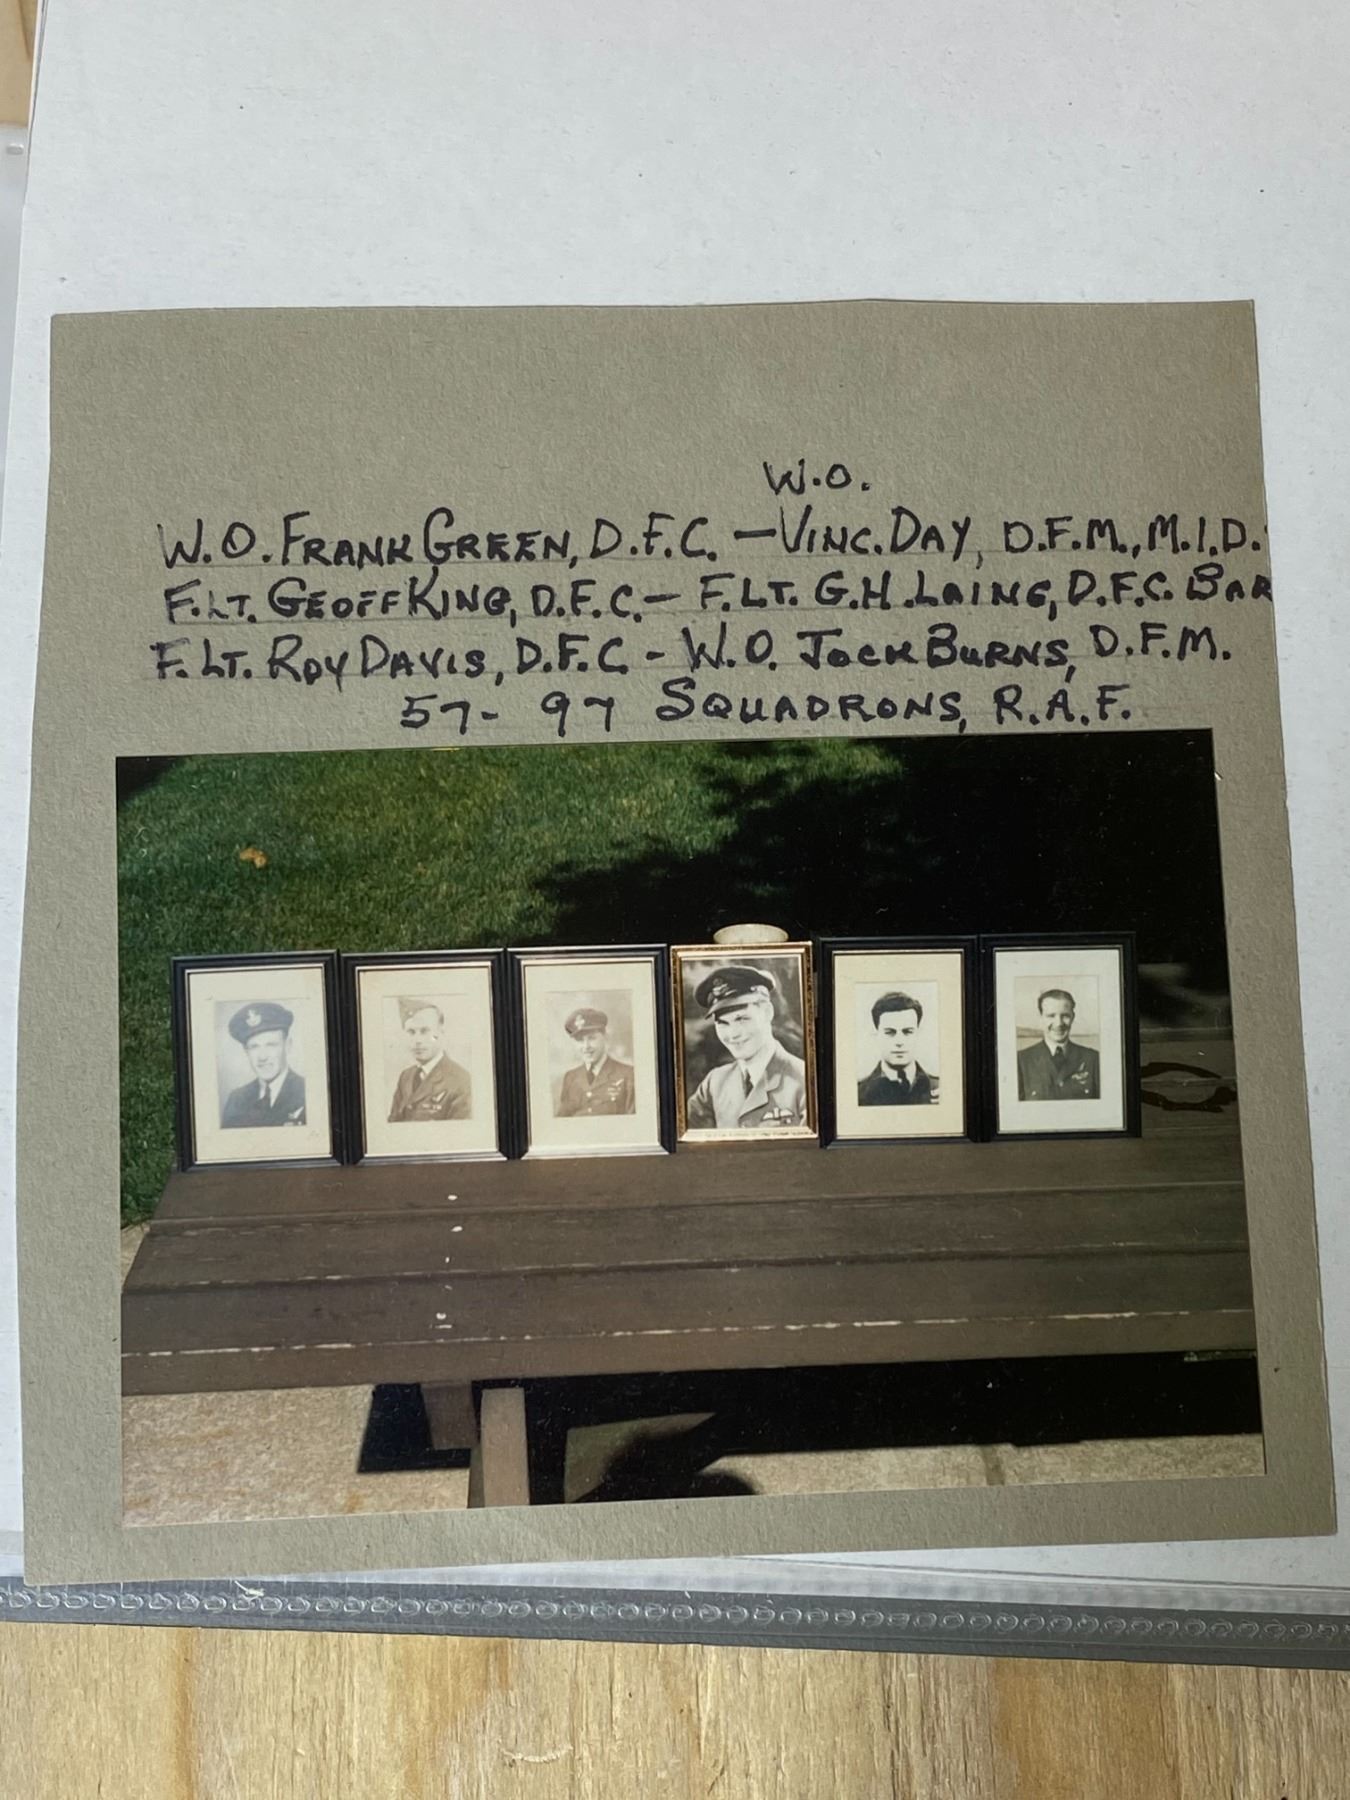 W.O.
W.O. FRANK GREEN, D.F.C. – VINC. DAY, D.F.M., M.I.D.
F.LT. GEOFF KING, D.F.C. – F.LT. G.H. LAING, D.F.C. BAR
F.LT. ROY DAVIS, D.F.C. - W.O. JOCK BURNS, D.F.M.
57- 97 SQUADRONS, R.A.F.